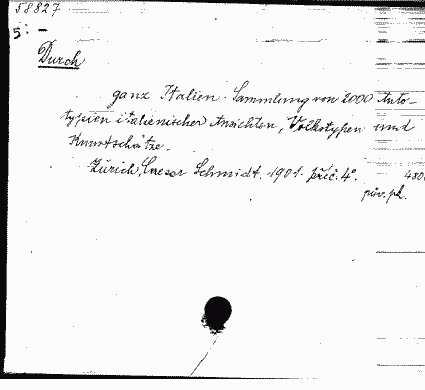 58827
5: -
Durch
ganz Italien. Sammlung von 2000 Auto-
typien italienischer Ansichten, Volkstypen und
Kunstschätze.
Zürich, Caesar Schmidt. 1901. příč. 4°.
480
pův. pl.